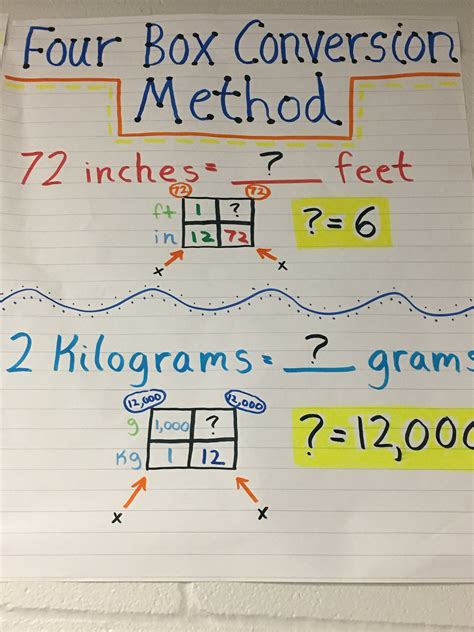 Four Box Conversion
Method
72 inches = ? feet
72 72
ft 1 ?
in 12 72
? = 6
x x
2 Kilograms = ? grams
12,000 12,000
g 1,000 ?
Kg 1 12
? = 12,000
x x